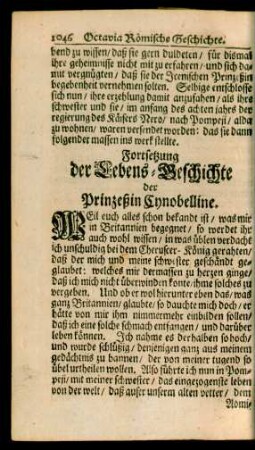 1046 Octavia Römische Geschichte.
bend zu wissen/ daß sie gern duldeten/ für dismal
ihre geheimnisse nicht mit zu erfahren/ und sich da-
mit vergnügten/ daß sie der Icenischen Prinzeßin
begebenheit vernehmen solten. Selbige entschlosse
sich nun/ ihre erzehlung damit anzufahen/ als ihre
schwester und sie/ im anfang des achten jahres der
regierung des Käisers Nero/ nach Pompeji/ alda
zu wohnen/ waren versendet worden: das sie dann
folgender massen ins werk stellte.
Forsetzung
der Lebens-Geschichte
der
Prinzeßin Cynobelline.
WEil euch alles schon bekandt ist/ was mir
in Britannien begegnet/ so werdet ihr
auch wohl wissen/ in was üblen verdacht
ich unschuldig bei dem Cherusker-König gerahten/
daß der mich und meine schwester geschändt ge-
glaubet: welches mir dermassen zu herzen ginge/
daß ich mich nicht überwinden konte/ihme solches zu
vergeben. Und ob er wol hierunter eben das/ was
ganz Britannien/ glaubte/ so dauchte mich doch/ er
hätte von mir ihm nimmermehr einbilden sollen/
daß ich eine solche schmach entfangen/ und darüber
leben können. Ich nahm es derhalben so hoch/
und wurde schlüßig/ denjenigen ganz aus meinem
gedächtnis zu bannen/ der von meiner tugend so
übel urtheilen wollen. Also führte ich nun in Pom-
peji/ mit meiner schwester/ das eingezogenste leben
von der welt/ daß auser unserm alten vetter/ dem
Römi-